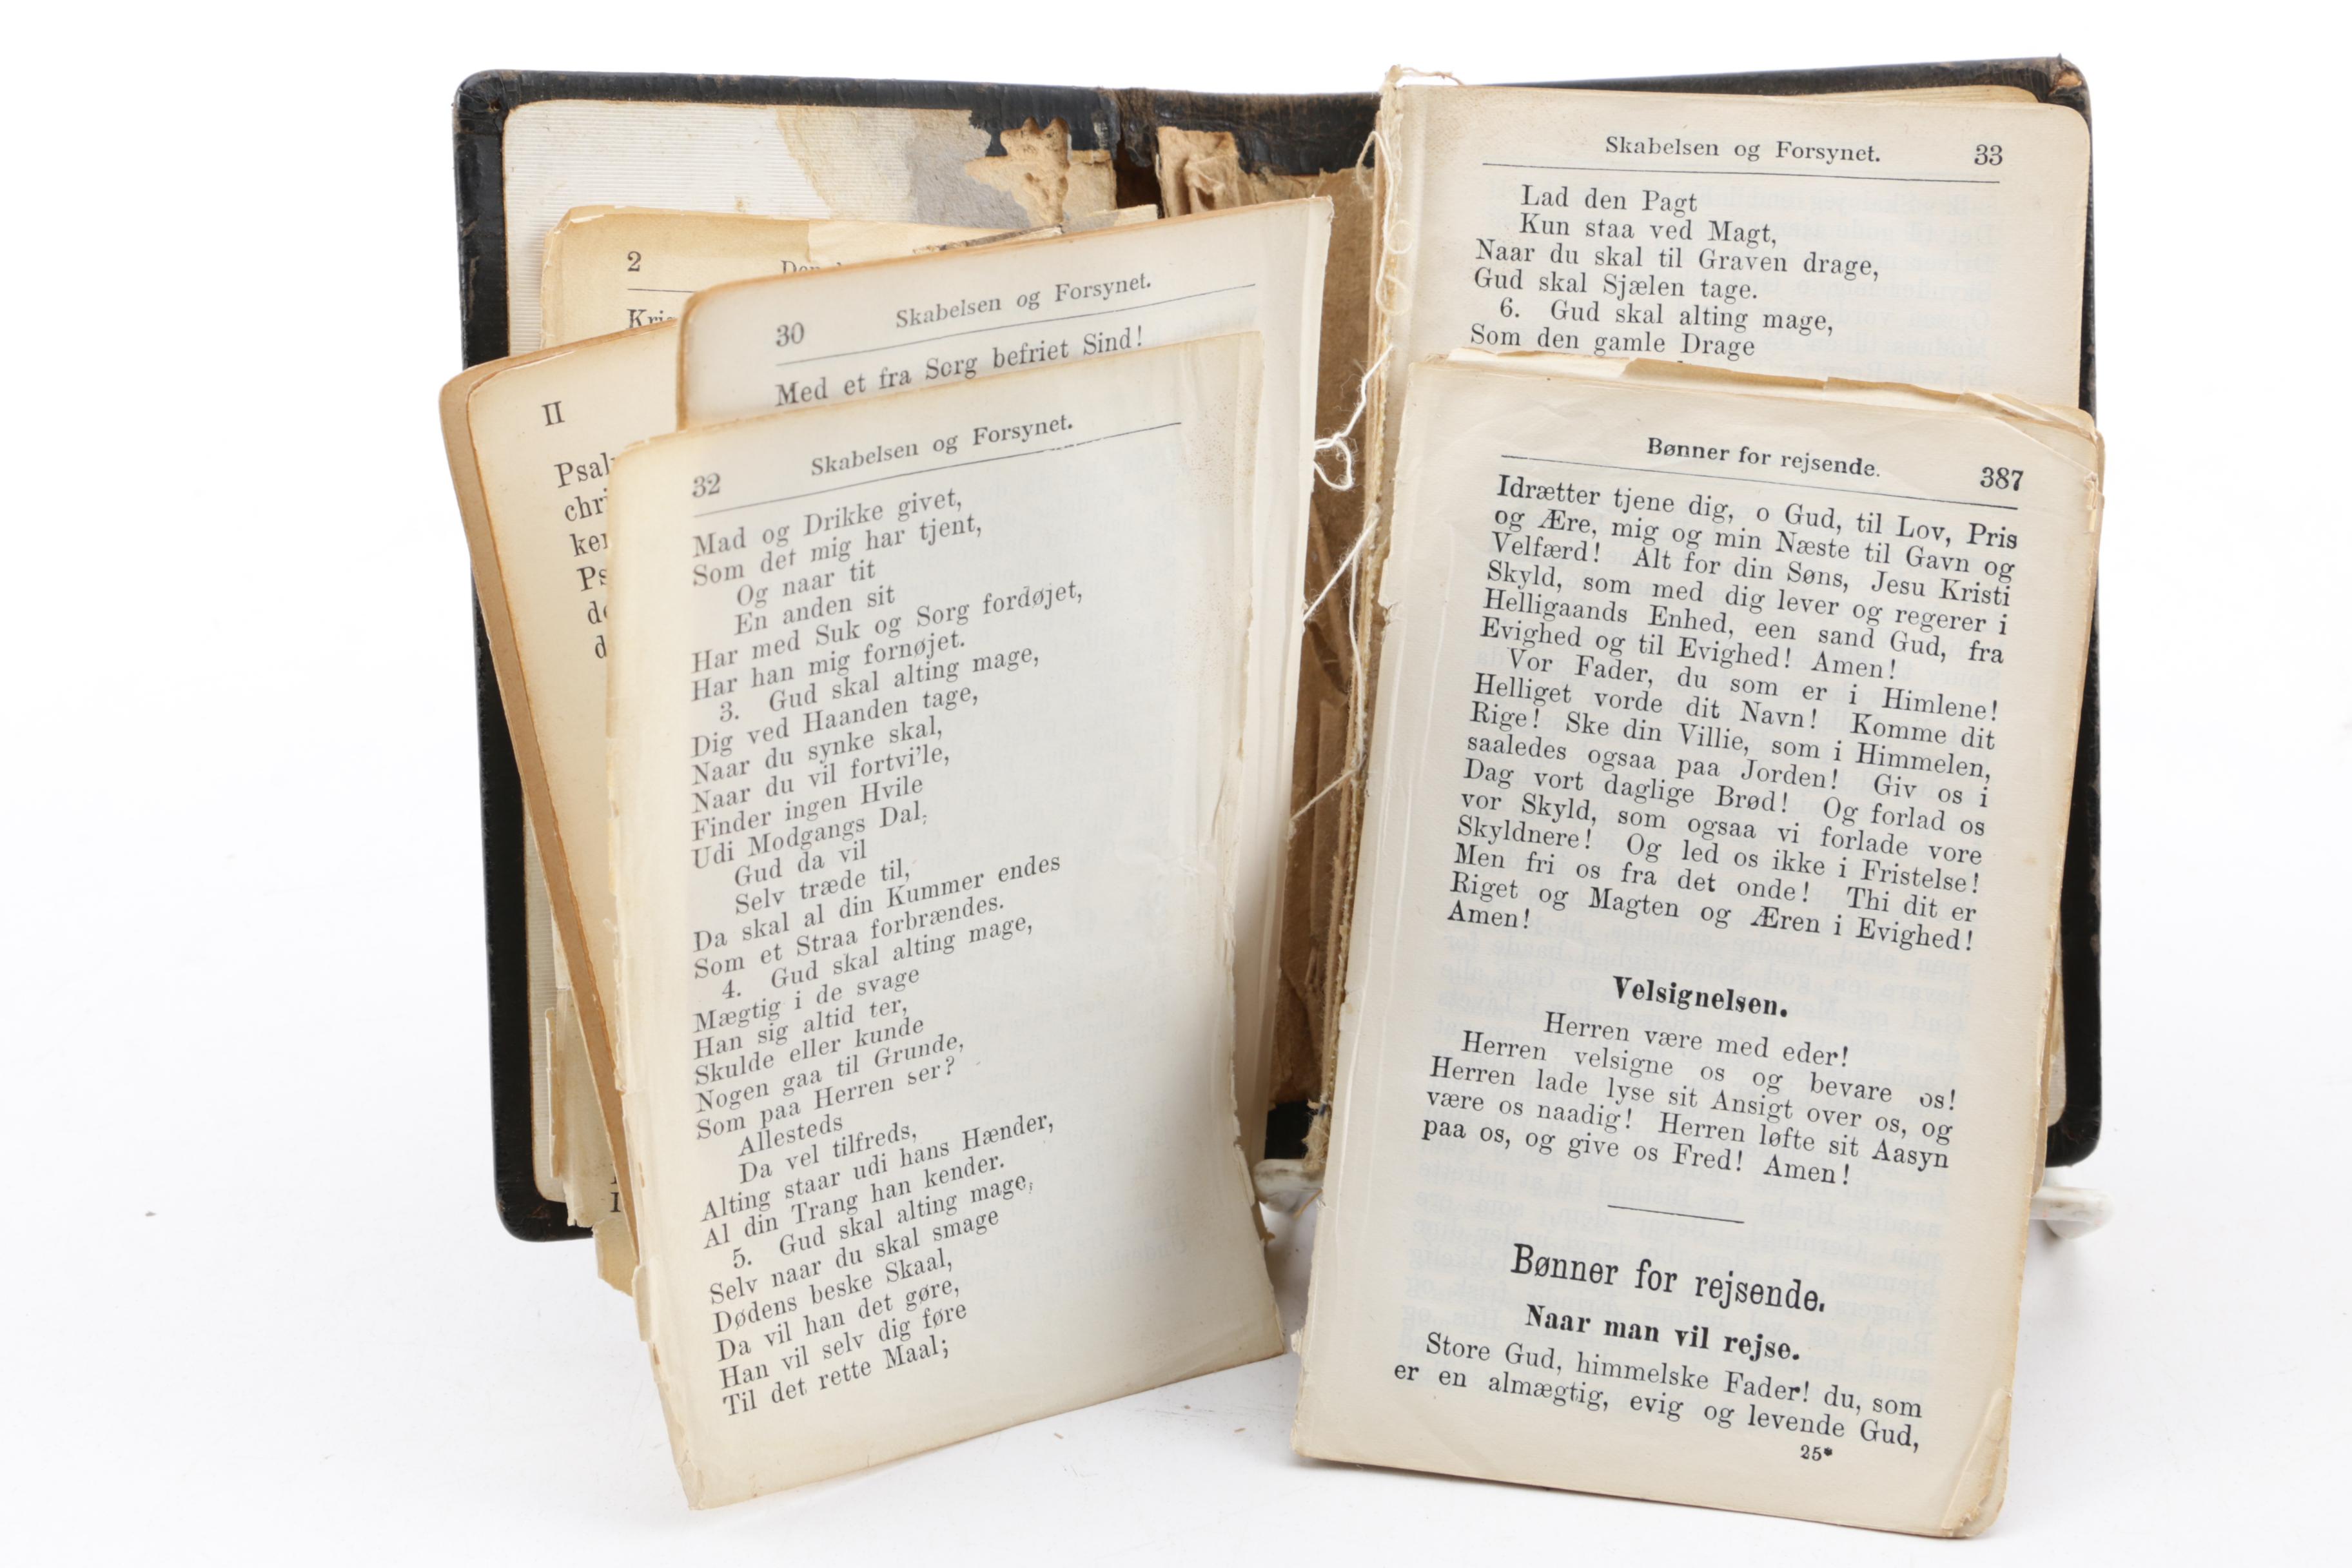 2
30 Skabelsen og Forsynet.
Med et fra Sorg befriet Sind!
II
32 Skabelsen og Forsynet.
Mad og Drikke givet,
Som det mig har tjent,
Og naar tit
En anden sit
Har med Suk og Sorg fordøjet,
Har han mig fornøjet.
3. Gud skal alting mage,
Dig ved Haanden tage,
Naar du synke skal,
Naar du vil fortvi'le,
Finder ingen Hvile
Udi Modgangs Dal,
Gud da vil
Selv træde til,
Da skal al din Kummer endes
Som et Straa forbrændes.
4. Gud skal alting mage,
Mægtig i de svage
Han sig altid ter,
Skulde eller kunde
Nogen gaa til Grunde,
Som paa Herren ser?
Allesteds
Da vel tilfreds,
Alting staar udi hans Hænder,
Al din Trang han kender.
5. Gud skal alting mage,
Selv naar du skal smage
Dødens beske Skaal,
Da vil han det gøre,
Han vil selv dig føre
Til det rette Maal;
Skabelsen og Forsynet. 33
Lad den Pagt
Kun staa ved Magt,
Naar du skal til Graven drage,
Gud skal Sjælen tage.
6. Gud skal alting mage,
Som den gamle Drage
Bønner for rejsende. 387
Idrætter tjene dig, o Gud, til Lov, Pris
og Ære, mig og min Næste til Gavn og
Velfærd! Alt for din Søns, Jesu Kristi
Skyld, som med dig lever og regerer i
Helligaands Enhed, een sand Gud, fra
Evighed og til Evighed! Amen!
Vor Fader, du som er i Himlene!
Helliget vorde dit Navn! Komme dit
Rige! Ske din Villie, som i Himmelen,
saaledes ogsaa paa Jorden! Giv os i
Dag vort daglige Brød! Og forlad os
vor Skyld, som ogsaa vi forlade vore
Skyldnere! Og led os ikke i Fristelse!
Men fri os fra det onde! Thi dit er
Riget og Magten og Æren i Evighed!
Amen!
Velsignelsen.
Herren være med eder!
Herren velsigne os og bevare os!
Herren lade lyse sit Ansigt over os, og
være os naadig! Herren løfte sit Aasyn
paa os, og give os Fred! Amen!
Bønner for rejsende.
Naar man vil rejse.
Store Gud, himmelske Fader! du, som
er en almægtig, evig og levende Gud,
25*